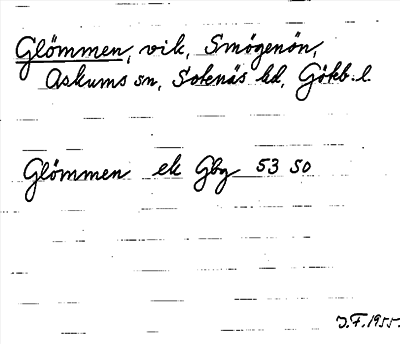 Glömmen, vik, Smögenön,
Askums sn, Sotenäs hd, Gökb. l.
Glömmen ek Gbg 53 50
J.F. 1955.